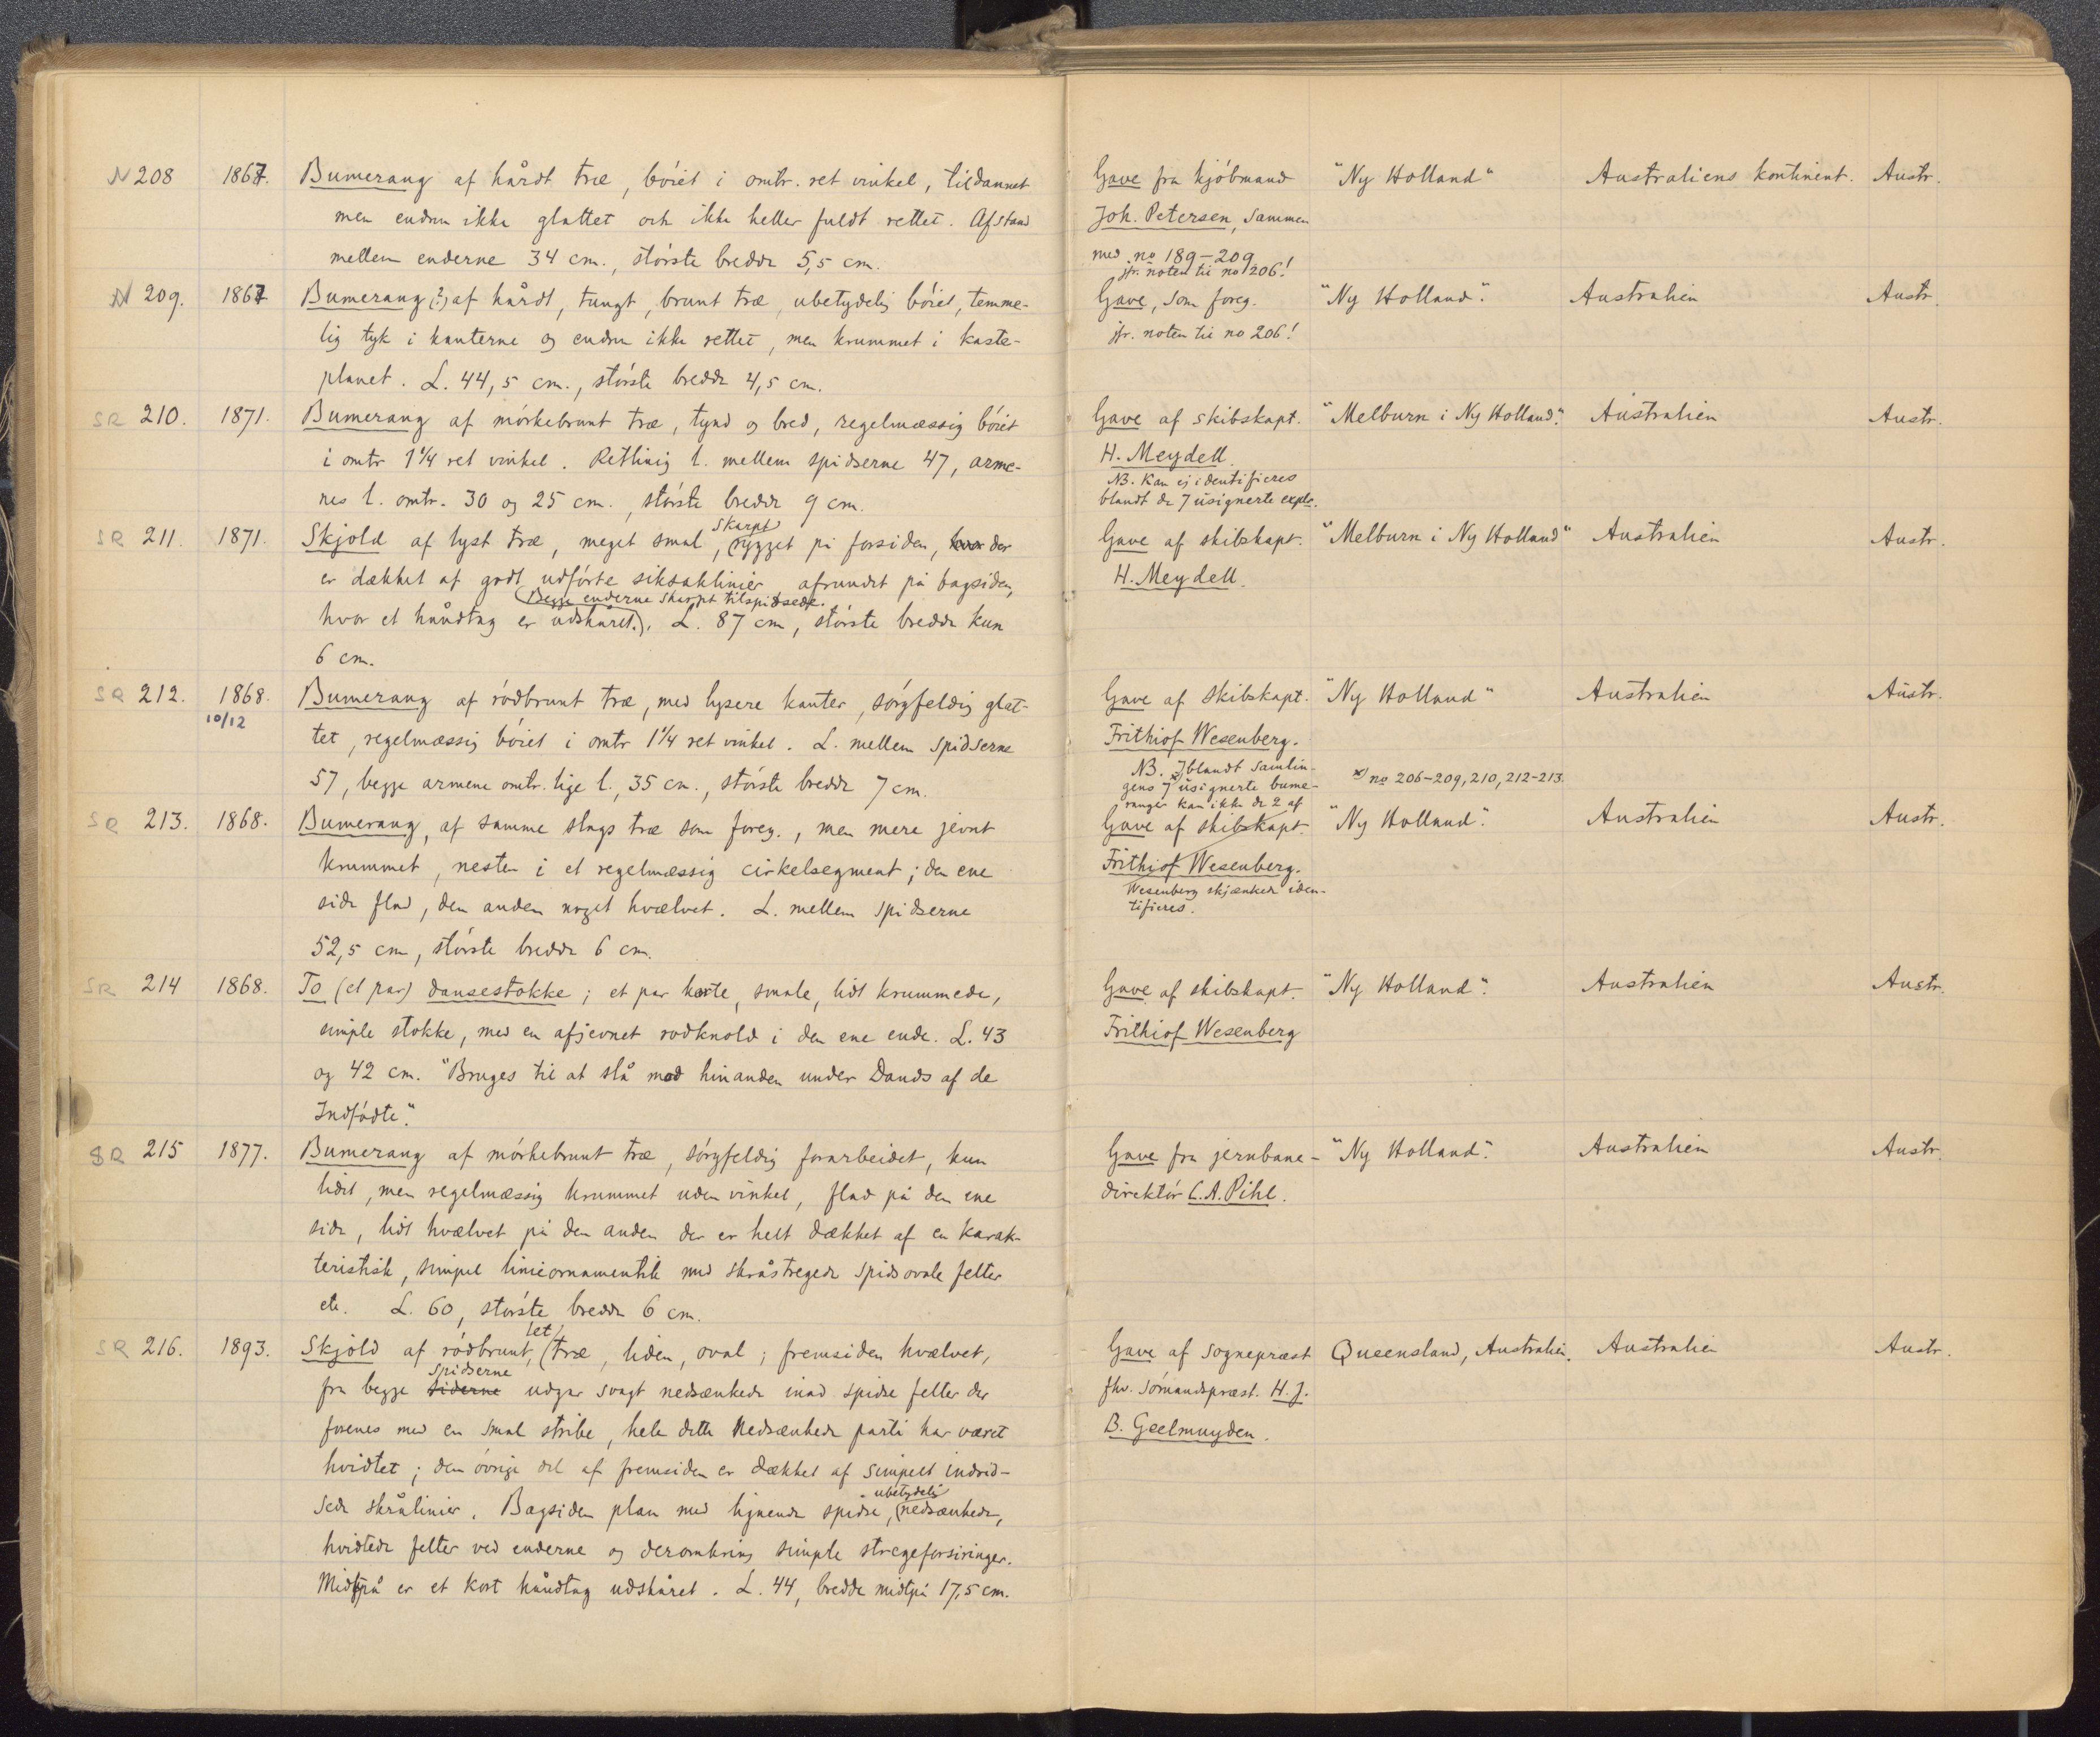 N 208 1867. Bumerang af hårdt træ, bóiet i omtr. ret vinkel, tildannet
men endnu ikke glattet och ikke heller fuldt rettet. Afstand
mellem enderne 34 cm., störste bredde 5,5 cm.
Gave fra kjóbmand "Ny Holland" Australiens kontinent. Austr.
Joh. Petersen, sammen
med no 189-209
jfr. noten til no 206!
N 209. 1867 Bumerang (?) af hårdt, tungt, brunt træ, ubetydelig bóiet, temme-
lig tyk i kanterne og endnu ikke rettet, men krummet i kaste-
planet. L. 44,5 cm., störste bredde 4,5 cm.
Gave, som foreg. "Ny Holland". Australien Austr.
jfr. noten til no 206!
SR 210. 1871. Bumerang af mórkebrunt træ, tynd og bred, regelmæssig bóiet
i omtr 1 1/4 ret vinkel. Retlinig l. mellem spidserne 47, arme-
nes l. omtr. 30 og 25 cm., störste bredde 9 cm.
Gave af skibskapt. "Melburn i Ny Holland". Australien Austr.
H. Meydell.
NB. Kan ej identificeres
blandt de 7 usignerte explr.
SR 211. 1871. Skjold af lyst træ, meget smal, skarpt rygget på forsiden, hvor der
er dækket af godt udfórte siksaklinier, afrundet på bagsiden,
hvor et håndtag er udskåret. Begge enderne skarpt tilspidsede. L. 87 cm, störste bredde kun
6 cm.
Gave af skibskapt. "Melburn i Ny Holland" Australien Austr.
H. Meydell.
SR 212. 1868. Bumerang af ródbrunt træ, med lysere kanter, sórgfeldig glat-
10/12
tet, regelmæssig bóiet i omtr 1 1/4 ret vinkel. L. mellem spidserne
57, begge armene omtr. lige l., 35 cm., störste bredde 7 cm.
Gave af skibskapt. "Ny Holland" Australien Austr.
Frithiof Wesenberg.
NB. Iblandt samlin-
gens 7 x) usignerte bume- x) no 206-209, 210, 212-213.
ranger kan ikke de 2 af
SR 213. 1868. Bumerang, af samme slags træ som foreg., men mere jevnt
krummet, nesten i et regelmæssig cirkelsegment; den ene
side flad, den anden noget hvælvet. L. mellem spidserne
52,5 cm, störste bredde 6 cm.
Gave af skibskapt. "Ny Holland". Australien Austr.
Frithiof Wesenberg.
Wesenberg skjænkede iden-
tificeres.
SR 214 1868. To (et par) dansestokke; et par korte, smale, lidt krummede,
simple stokke, med en afjevnet rodknold i den ene ende. L. 43
og 42 cm. "Bruges til at slå mod hinanden under Dands af de
Indfódte".
Gave af skibskapt. "Ny Holland". Australien Austr.
Frithiof Wesenberg
SR 215 1877. Bumerang af mórkebrunt træ, sórgfeldig forarbeidet, kun
lidet, men regelmæssig krummet uden vinkel, flad på den ene
side, lidt hvælvet på den anden der er helt dækket af en karak-
teristisk, simpel linieornamentik med skråstregede spidsovale felter
etc. L. 60, störste bredde 6 cm.
Gave fra jernbane- "Ny Holland". Australien Austr.
direktór C. A. Pihl.
SR 216. 1893. Skjold af ródbrunt, let træ, liden, oval; fremsiden hvælvet,
fra begge siderne spidserne udgår svagt nedsænkede inad spidse felter der
forenes med en smal stribe, hele dette nedsænkede parti har været
hvidtet; den óvrige del af fremsiden er dækket af simpelt indrid-
sede skrålinier. Bagsiden plan med lignende spidse, ubetydelig nedsænkede,
hvidtede felter ved enderne og deromkring simple stregeforsiringer.
Midtpå er et kort håndtag udskåret. L. 44, bredde midtpå 17,5 cm.
Gave af sognepræst Queensland, Australien. Australien Austr.
fhv. sómandspræst. H. J.
B. Geelmuyden.